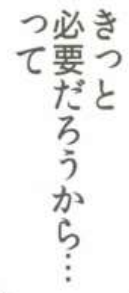 きっと
必要だろうから…
って